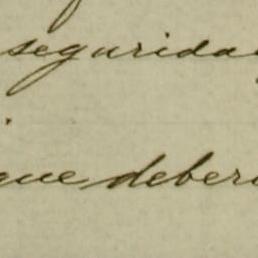 segurida
que deber